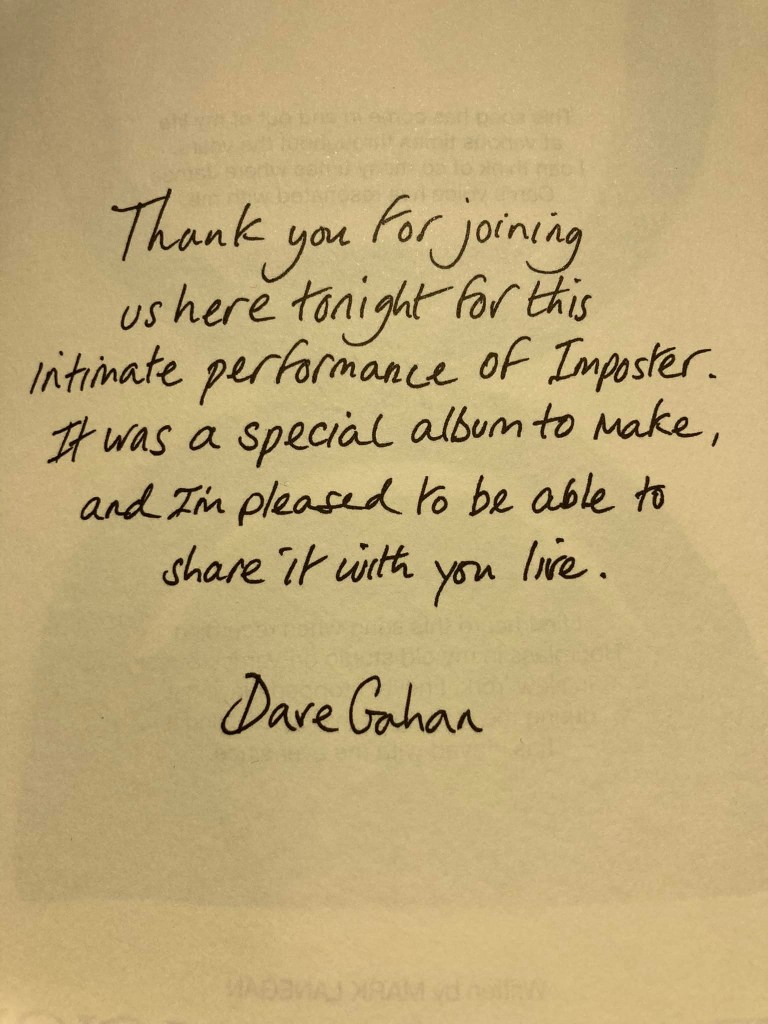 Thank you for joining
us here tonight for this
intimate performance of Imposter.
It was a special album to make,
and I'm pleased to be able to
share it with you live.
Dave Gahan
Written by MARK LANEGAN